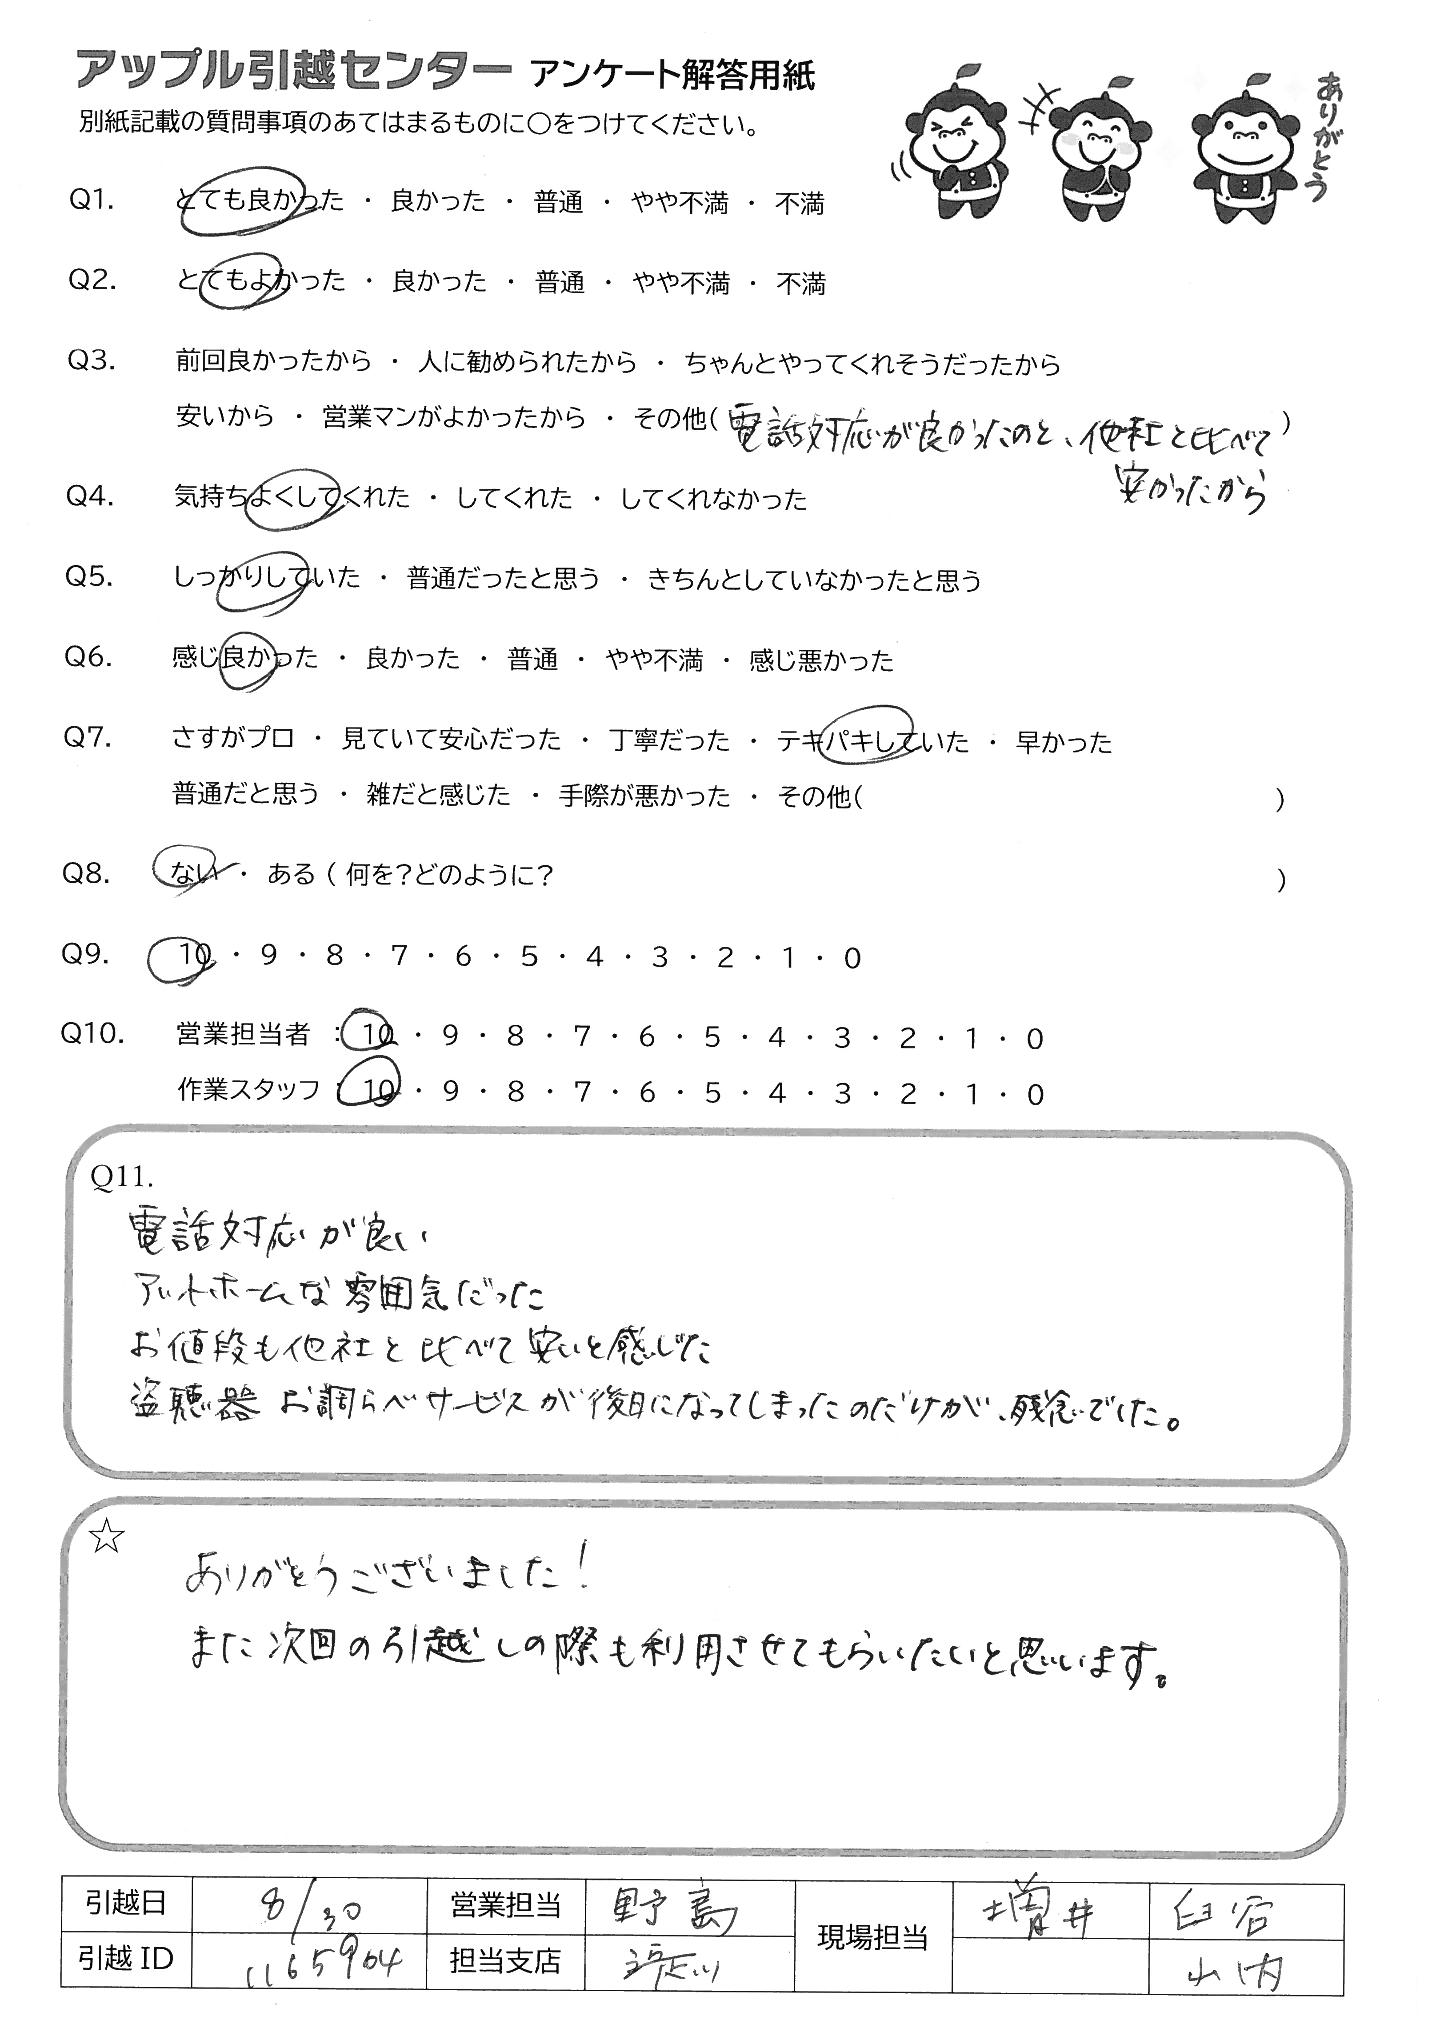 アップル引越センター アンケート解答用紙
別紙記載の質問事項のあてはまるものに○をつけてください。
ありがとう
Q1. とても良かった ・ 良かった ・ 普通 ・ やや不満 ・ 不満
Q2. とてもよかった ・ 良かった ・ 普通 ・ やや不満 ・ 不満
Q3. 前回良かったから ・ 人に勧められたから ・ ちゃんとやってくれそうだったから
安いから ・ 営業マンがよかったから ・ その他( 電話対応が良かったのと、他社と比べて )
安かったから
Q4. 気持ちよくしてくれた ・ してくれた ・ してくれなかった
Q5. しっかりしていた ・ 普通だったと思う ・ きちんとしていなかったと思う
Q6. 感じ良かった ・ 良かった ・ 普通 ・ やや不満 ・ 感じ悪かった
Q7. さすがプロ ・ 見ていて安心だった ・ 丁寧だった ・ テキパキしていた ・ 早かった
普通だと思う ・ 雑だと感じた ・ 手際が悪かった ・ その他( )
Q8. ない ・ ある ( 何を?どのように? )
Q9. 10 ・ 9 ・ 8 ・ 7 ・ 6 ・ 5 ・ 4 ・ 3 ・ 2 ・ 1 ・ 0
Q10. 営業担当者 : 10 ・ 9 ・ 8 ・ 7 ・ 6 ・ 5 ・ 4 ・ 3 ・ 2 ・ 1 ・ 0
作業スタッフ : 10 ・ 9 ・ 8 ・ 7 ・ 6 ・ 5 ・ 4 ・ 3 ・ 2 ・ 1 ・ 0
Q11.
電話対応が良い
アットホームな雰囲気だった
お値段も他社と比べて安いと感じた
盗聴器お調らべサービスが後日になってしまったのだけが、残念でした。
☆
ありがとうございました!
また次回の引越しの際も利用させてもらいたいと思います。
引越日 8/30 営業担当 野島 現場担当 増井 臼谷
引越ID 1165904 担当支店 山内